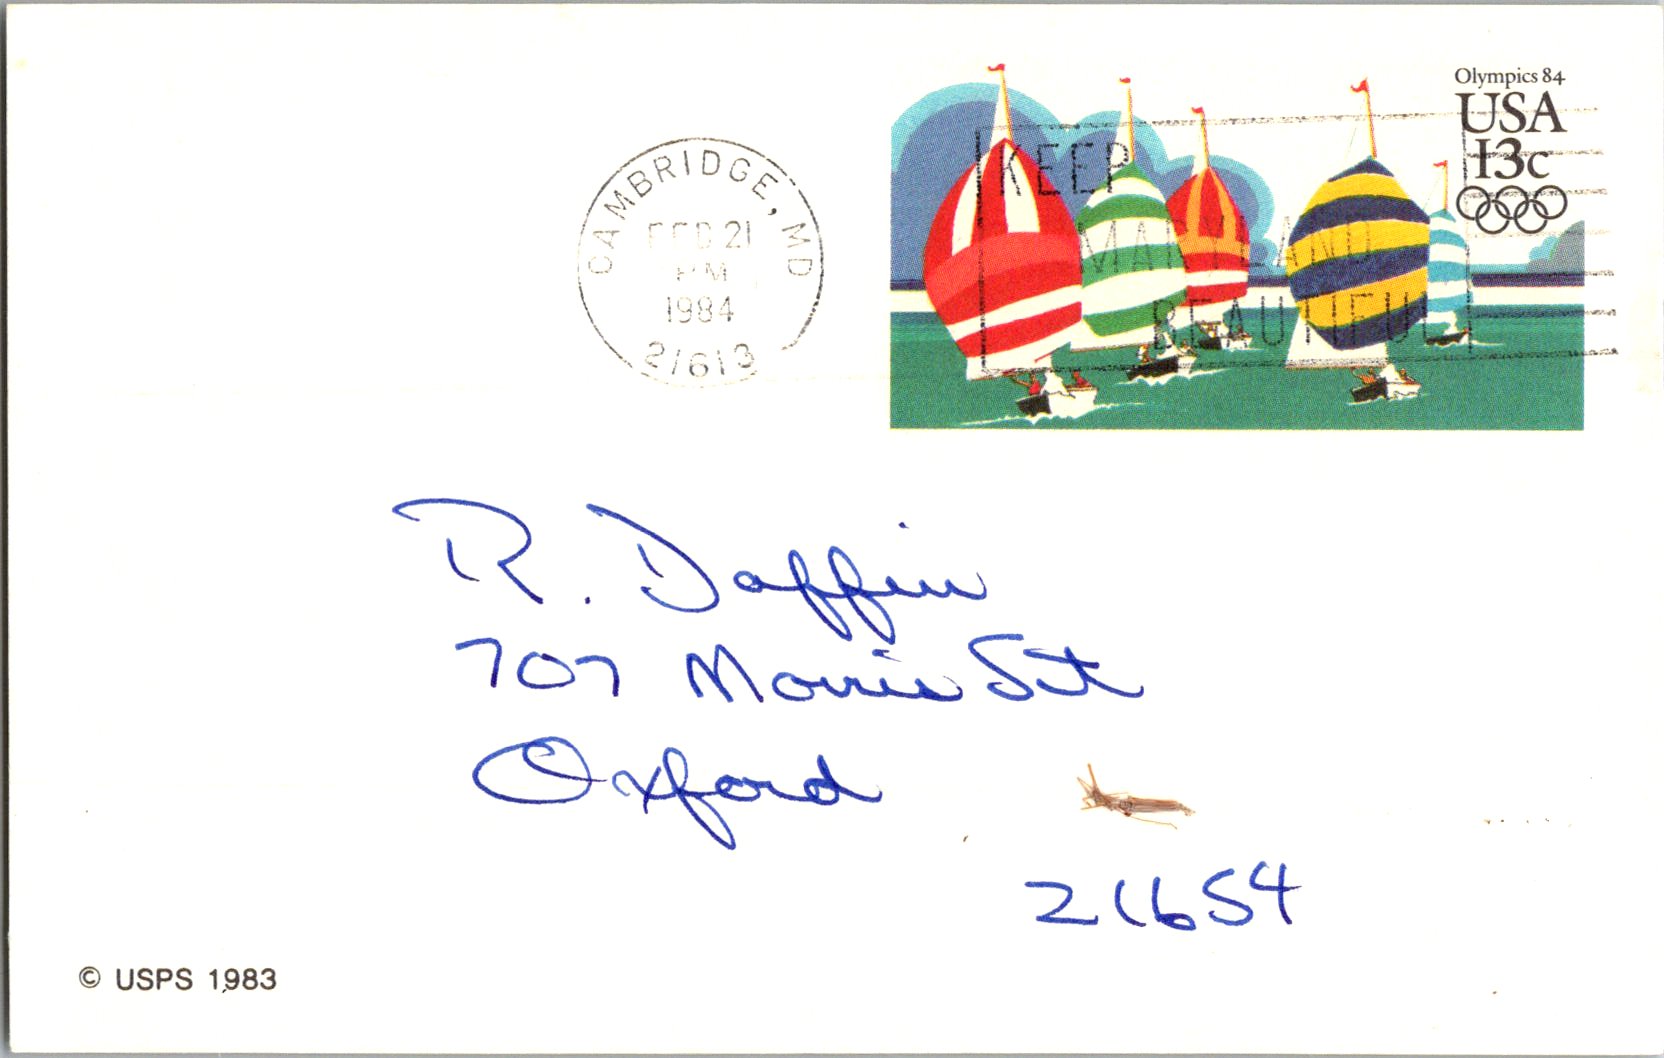 Olympics 84
USA
13c
CAMBRIDGE, MD
FEB 21
PM
1984
21613
KEEP
MARYLAND
BEAUTIFUL
R. Daffin
707 Morris St
Oxford
21654
© USPS 1983